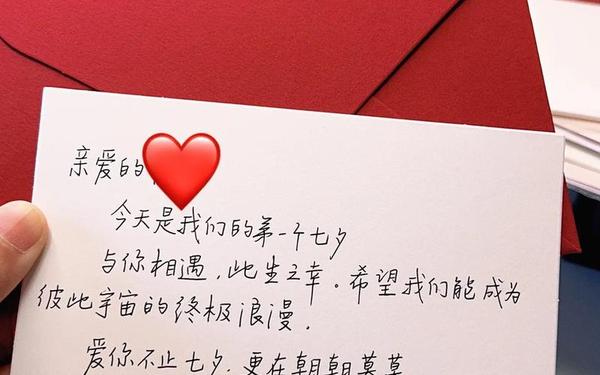 亲爱的
今天是我们的第一个七夕
与你相遇，此生之幸。希望我们能成为
彼此宇宙的终极浪漫.
爱你不止七夕，更在朝朝暮暮